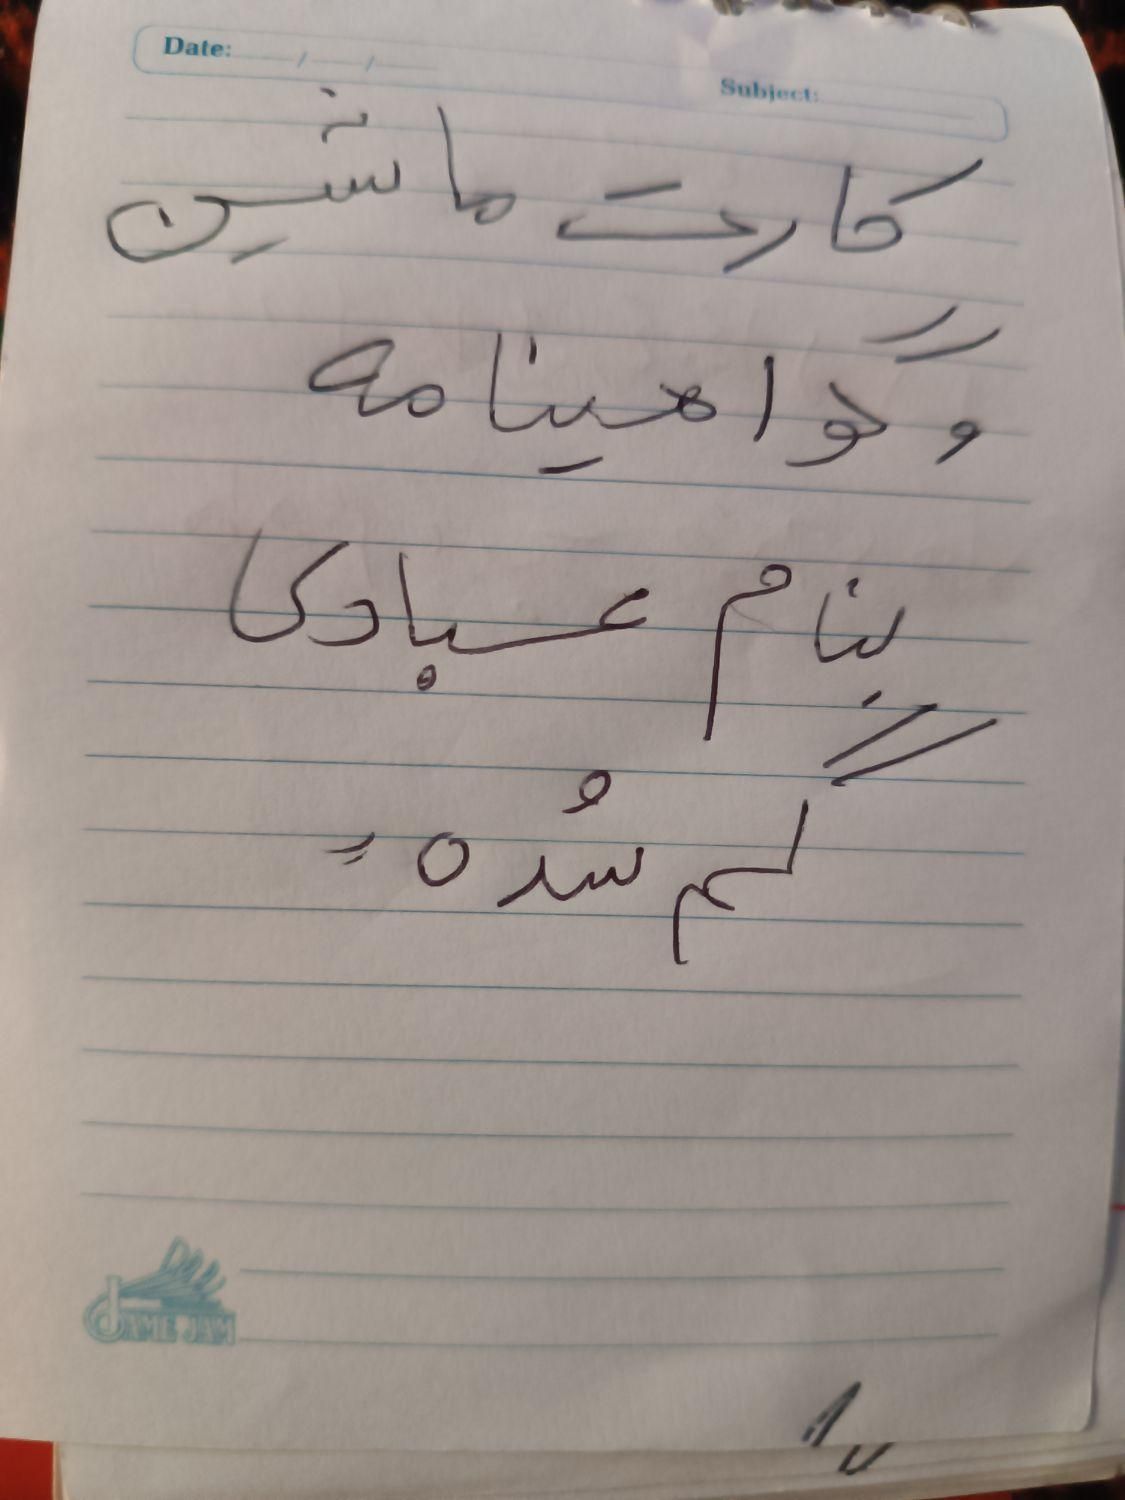 Date: / /
Subject:
کارت ماشین
و گواهینامه
بنام عبادکا
گم شده
JAME JAM